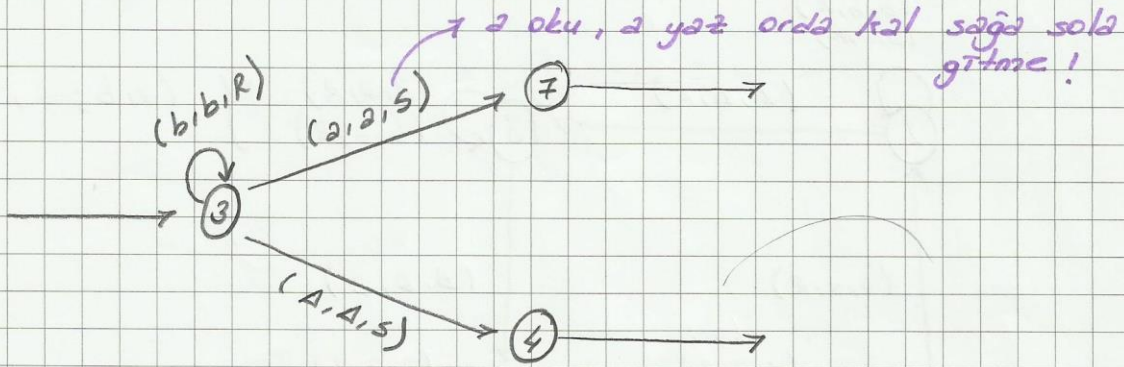 a oku, a yaz orda kal sağa sola
gitme !
(b,b,R)
(a,a,S)
7
3
(Δ,Δ,S)
4